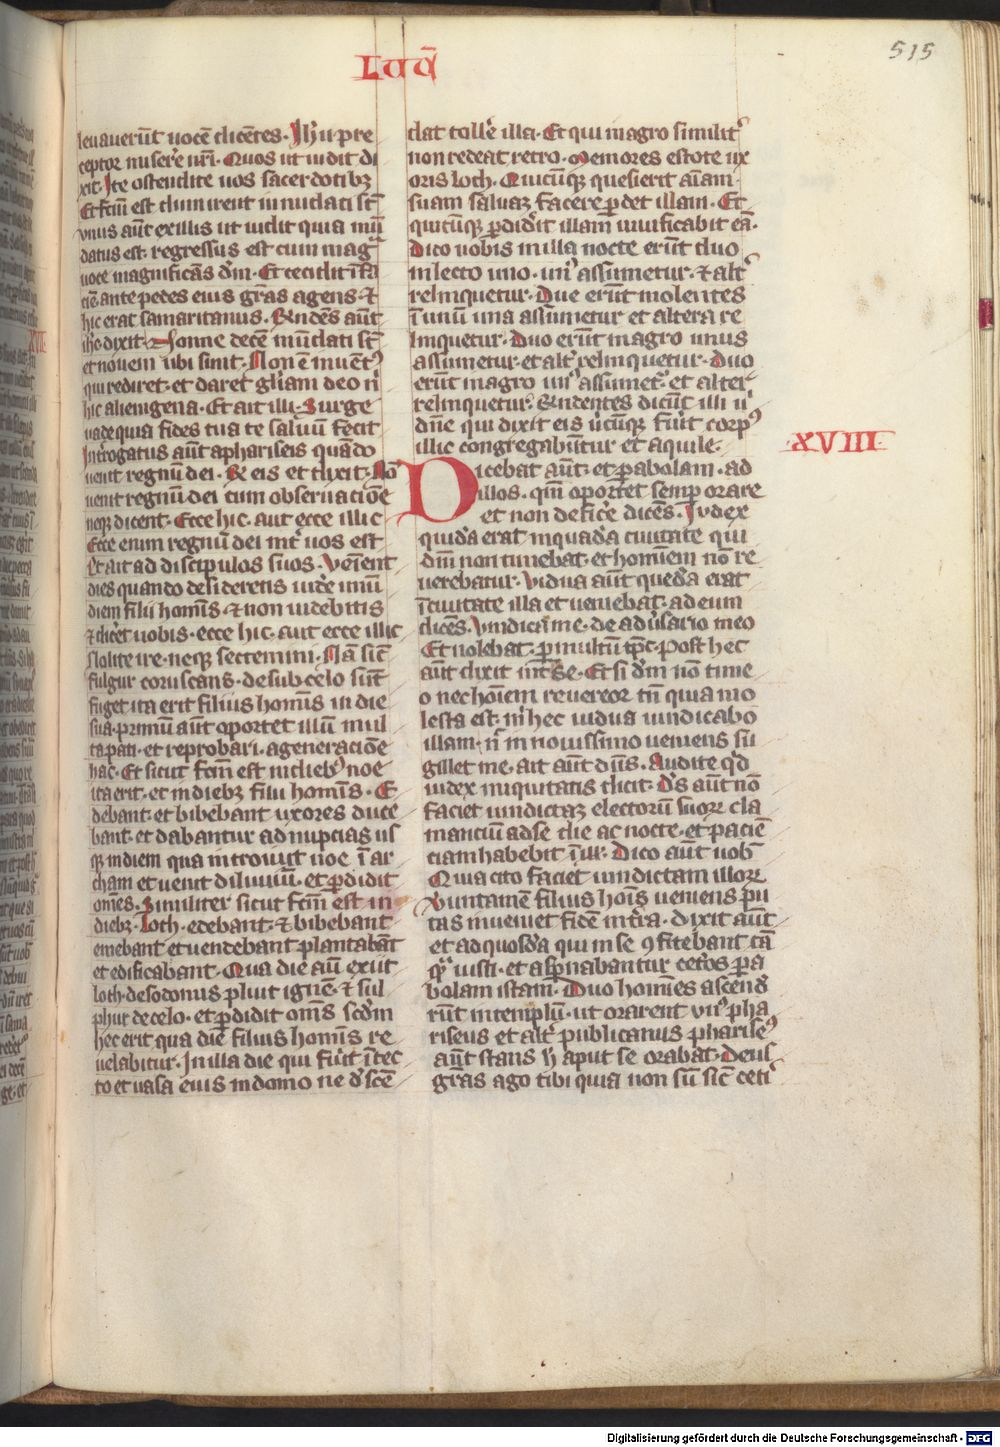 515
Luca
leuauerūt uocē dicētes. Ih'u pre
ceptor miserē nr̄i. Quos ut uidit di
xit. Ite ostendite uos sacerdotibꝫ
Et fcm̄ est dum irent mundati st̄
vnus aūt ex illis ut uidit quia mū
datus est. regressus est cum mag
uoce magnificās dm̄. Et cecidit ī fa
ciē. ante pedes eius grās agens. ⁊
hic erat samaritanus. Rn̄dēs aūt
ih̄c dixit. Nonne decē mūdati st̄
et nouem ubi sunt. Non ē inuēt9
qui rediret. et daret glīam deo n'
hic alienigena. Et ait illi. Surge
uade quia fides tua te saluū fecit
Introgatus aūt a phariseis quādo
uenit regnū dei. R eis et dixit. Nō
uenit regnū dei cum obseruaciōe
neqꝫ dicent. Ecce hic. aut ecce illic
Ecce enim regnū dei int' uos est
Et ait ad discipulos suos. Veniēnt
dies quando desideretis uidē unū
diem filii homīs. ⁊ non uidebitis
⁊ dicēt uobis. ecce hic. aut ecce illic
Nolite ire. neqꝫ sectemini. Nā sic̄
fulgur coruscans. de sub celo sūt
fuget ita erit filius homīs in die
sua. primū aūt oportet illū mul
ta pati. et reprobari. a generaciōe
hac. Et sicut fcm̄ est in dieb9 noe
ita erit. et in diebꝫ filii homīs. E
debant. et bibebant uxores duce
bant. et dabantur ad nupcias us
qꝫ in diem qua introiuit noe ī ar
cham et uenit diluuiū. et ꝑdidit
omēs. Similiter sicut fcm̄ est in
diebꝫ Loth. edebant. ⁊ bibebant
emebant et uendebant plantabāt
et edificabant. Qua die aūt exiit
loth. de sodomis pluit ignē. ⁊ sul
phur de celo. et ꝑdidit oms̄ scd̄m
hec erit qua die filius homīs re
uelabitur. In illa die qui fūit ī tec
to et uasa eius in domo ne d'scē
dat toll'e illa. Et qui in agro similit'
non redeat retro. Memores estote ux
oris loth. Quicūqꝫ quesierit aīam
suam saluaꝫ facere ꝑdet illam. Et
quicūqꝫ ꝑdid'it illam uiuificabit eā.
Dico uobis in illa nocte erūt duo
in lecto uno. un' assumetur. ⁊ alt'
relinquetur. Due erūt molentes
ī unū una assumetur et altera re
linquetur. Duo erūt in agro unus
assumetur. et alt' relinquetur. Duo
erūt in agro un' assumet'. et alter
relinquetur. Rn̄dentes dicūt illi u'
dn̄e qui dixit eis ubicūqꝫ fūit corp9
illic congregabūntur et aquile.
XVIII
Dicebat aūt. et ꝑabolam. ad
illos. qm̄ oportet semꝑ orare
et non deficē dicēs. Iudex
quidā erat in quadā ciuitate qui
dm̄ non timebat. et hominem nō re
uerebatur. Vidua aūt quedā erat
ī ciuitate illa et ueniebat. ad eum
dicēs. Vindica me. de adu'sario meo
Et nolebat. ꝑ multū tpc̄. Post hec
aūt dixit int' se. Et si dm̄ nō time
o nec hoīem reuereor tn̄ quia mo
lesta est. m' hec uidua uindicabo
illam. n' in nouissimo ueniens su
gillet me. ait aūt dn̄s. Audite qd
iudex iniquitatis dicit. Ds̄ aūt nō
faciet uindictaꝫ electorū suoꝝ cla
manciū ad se die ac nocte. et paciē
ciam habebit ī ill'. Dico aūt uob'
Quia cito faciet uindictam illoꝝ
Vūntamē filius hoīs ueniens pu
tas inueniet fidē in t'ra. dixit aūt
et ad quosdā qui in se ꝯfitebant tā
qꝫ iusti. et aspnabantur cet'os ꝑa
bolam istam. Duo homīes ascend'
rūt in templū. ut orarent vn' pha
riseus et alt' publicanus phariseꝰ
aūt stans h' aput se orabat. Deus
grās ago tibi quia non sū sic̄ ceti'